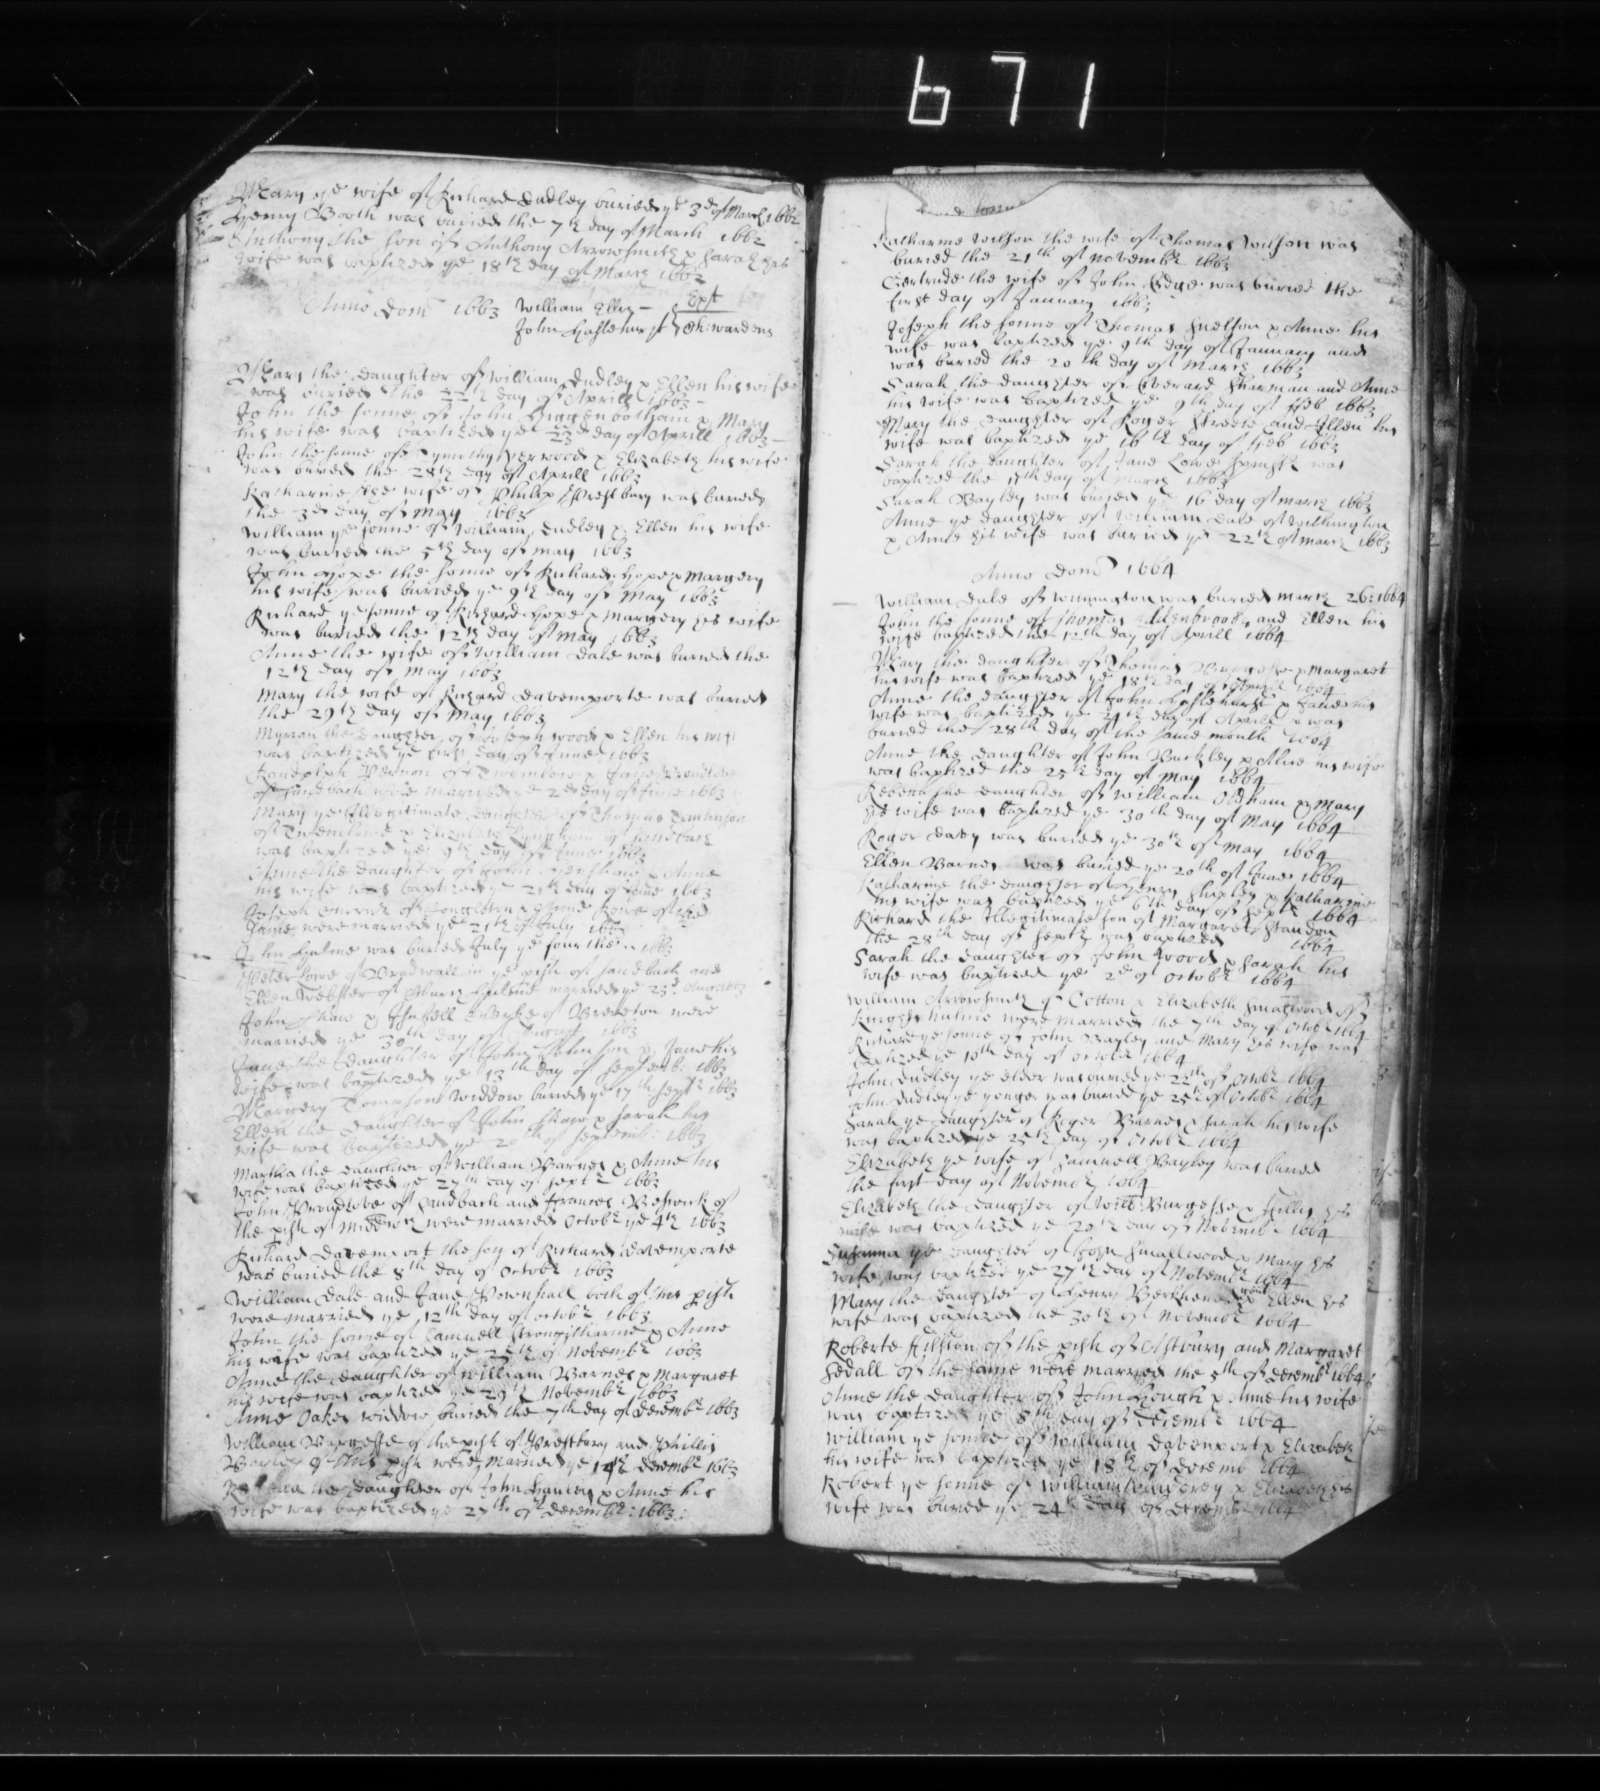 671
Mary ye wife of Richard Dudley buried ye 3d of March 1662
Henry Booth was buried the 7th day of March 1662
Anthony the son of Anthony Arrowsmith & Sarah his
wife was baptized ye 18th day of March 1662
Anno Dom 1663 William Ellis
John Ch: wardens
Mary the daughter of William Dudley & Ellen his wife
was buried the 22th day of Aprill 1663
John the sonne of John & Mary
his wife was baptized ye 23d day of Aprill 1663
John the sonne of Yerwood & Elizabeth his wife
was buried the 28th day of Aprill 1663
Katharine the wife of Philip Prestbury was buried
the 3d day of May 1663
William ye sonne of William Dudley & Ellen his wife
was buried the 5th day of may 1663
John Hope the sonne of Richard Hope & Margery
his wife was buried ye 9th day of May 1663
Richard ye sonne of Richard Hope & Margery his wife
was buried the 12th day of May 1663
Anne the wife of William Dale was buried the
12th day of May 1663
Mary the wife of Richard Davemporte was buried
the 29th day of May 1663
the daughter of Joseph Wood & Ellen his wife
was baptized ye first day of June 1663
Randolph Vernon of &
of Sandbach were married ye 2d day of June 1663
Mary ye Illegitimate daughter of Thomas
of & Elizabeth of Sandbach
was baptized ye 9th day of June 1663
Anne the daughter of & Anne
his wife was baptized ye 21th day of June 1663
Joseph of Congleton & Lowe of the
same were married ye 21th of July 1663
John was buried July ye fourth 1663
Peter Lowe of Bradwall in ye pish of Sandbach and
Ellen Webster of married ye 23d 1663
John Shaw & of Brereton were
married ye 30th day of August 1663
Jane the daughter of John Johnson & Jane his
wife was baptized ye 13th day of Septemb: 1663
Margery Tompson widdow buried ye 17th Septr 1663
Ellen the daughter of John Shaw & Sarah his
wife was baptized ye 20th of Septemb: 1663
Martha the daughter of William Barnes & Anne his
wife was baptized ye 27th day of Septr 1663
John Proudlove of Sandbach and Frances Beswick of
the pish of were married Octobr ye 4th 1663
Richard Davemport the son of Richard Davemporte
was buried the 8th day of Octobr 1663
William Dale and Jane Downhall both of this pish
were married ye 12th day of Octobr 1663
John the sonne of Samuell Strongitharme & Anne
his wife was baptized ye 25th of Novembr 1663
Anne the daughter of William Barnes & Margaret
his wife was baptized ye 29th Novembr 1663
Anne Oakes widdow buried the 7th day of Decembr 1663
William Burgesse of the pish of Prestbury and Phillis
of this pish were married ye 14th Decembr 1663
the daughter of John & Anne his
wife was baptized ye 27th of Decembr: 1663:
Katharine Wilson the wife of Thomas Wilson was
buried the 21th of Novembr 1663
Gertrude the wife of John Edge was buried the
first day of January 1663
Joseph the sonne of Thomas Snelson & Anne his
wife was baptized ye 9th day of January and
was buried the 20th day of March 1663
Sarah the daughter of Everard Sharman and Anne
his wife was baptized ye 9th day of Feb 1663
Mary the daughter of Roger Streete and Ellen his
wife was baptized ye 16th day of Feb 1663
Sarah the daughter of Jane Lowe was
baptized the 11th day of March 1663
Sarah Bayley was buried ye 16 day of march 1663
Anne ye daughter of William Dale of Withington
& Anne his wife was buried ye 22th of march 1663
Anno Dom 1664
William Dale of was buried march 26: 1664
John the sonne of Thomas and Ellen his
wife baptized the 12th day of Aprill 1664
Mary the daughter of Thomas & Margaret
his wife was baptized ye 18th day of Aprill 1664
Anne the daughter of John & Jane his
wife was baptized ye 24th day of Aprill & was
buried the 28th day of the same month 1664
Anne the daughter of John Buckley & Alice his wife
was baptized the 25th day of May 1664
the daughter of William Oldham & Mary
his wife was baptized ye 30th day of May 1664
Roger Davy was buried ye 30th of May 1664
Ellen Barnes was buried ye 20th of June 1664
Katharine the daughter of Henry & Katharine
his wife was baptized ye 6th day of Septr 1664
Richard the Illegitimate son of Margaret Standon
the 28th day of Septr was baptized 1664
Sarah the daughter of John Wood & Sarah his
wife was baptized ye 2d of Octobr 1664
William Arrowsmith of Cotton & Elizabeth Smallwood of
were married the 7th day of Octobr 1664
Richard ye sonne of John Bayley and Mary his wife was
baptized ye 10th day of Octobr 1664
John Dudley ye elder was buried ye 22th of Octobr 1664
John Dudley ye yonger was buried ye 25th of Octobr 1664
Sarah ye daughter of Roger Barnes & Sarah his wife
was baptized ye 25th day of Octobr 1664
Elizabeth ye wife of Samuell Bayley was buried
the first day of Novembr 1664
Elizabeth the daughter of Will: Burgesse & Phillis his
wife was baptized ye 20th day of Novembr 1664
Susanna ye daughter of John Smallwood & Mary his
wife was baptized ye 27th day of Novembr 1664
Mary the daughter of Henry & Ellen his
wife was baptized the 30th of Novembr 1664
Roberte of the pish of Astbury and Margaret
of the same were married the 5th of Decembr 1664
Anne the daughter of John Hough & Anne his wife
was baptized ye 8th day of Decembr 1664
William ye sonne of William Davenport & Elizabeth
his wife was baptized ye 18th of Decemb 1664
Robert ye sonne of William & Elizabeth his
wife was buried ye 24th day of Decembr 1664